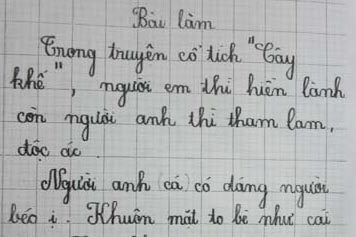 Bài làm
Trong truyện cổ tích "Cây
khế", người em thì hiền lành
còn người anh thì tham lam,
độc ác.
Người anh cả có dáng người
béo ị. Khuôn mặt to bè như cái